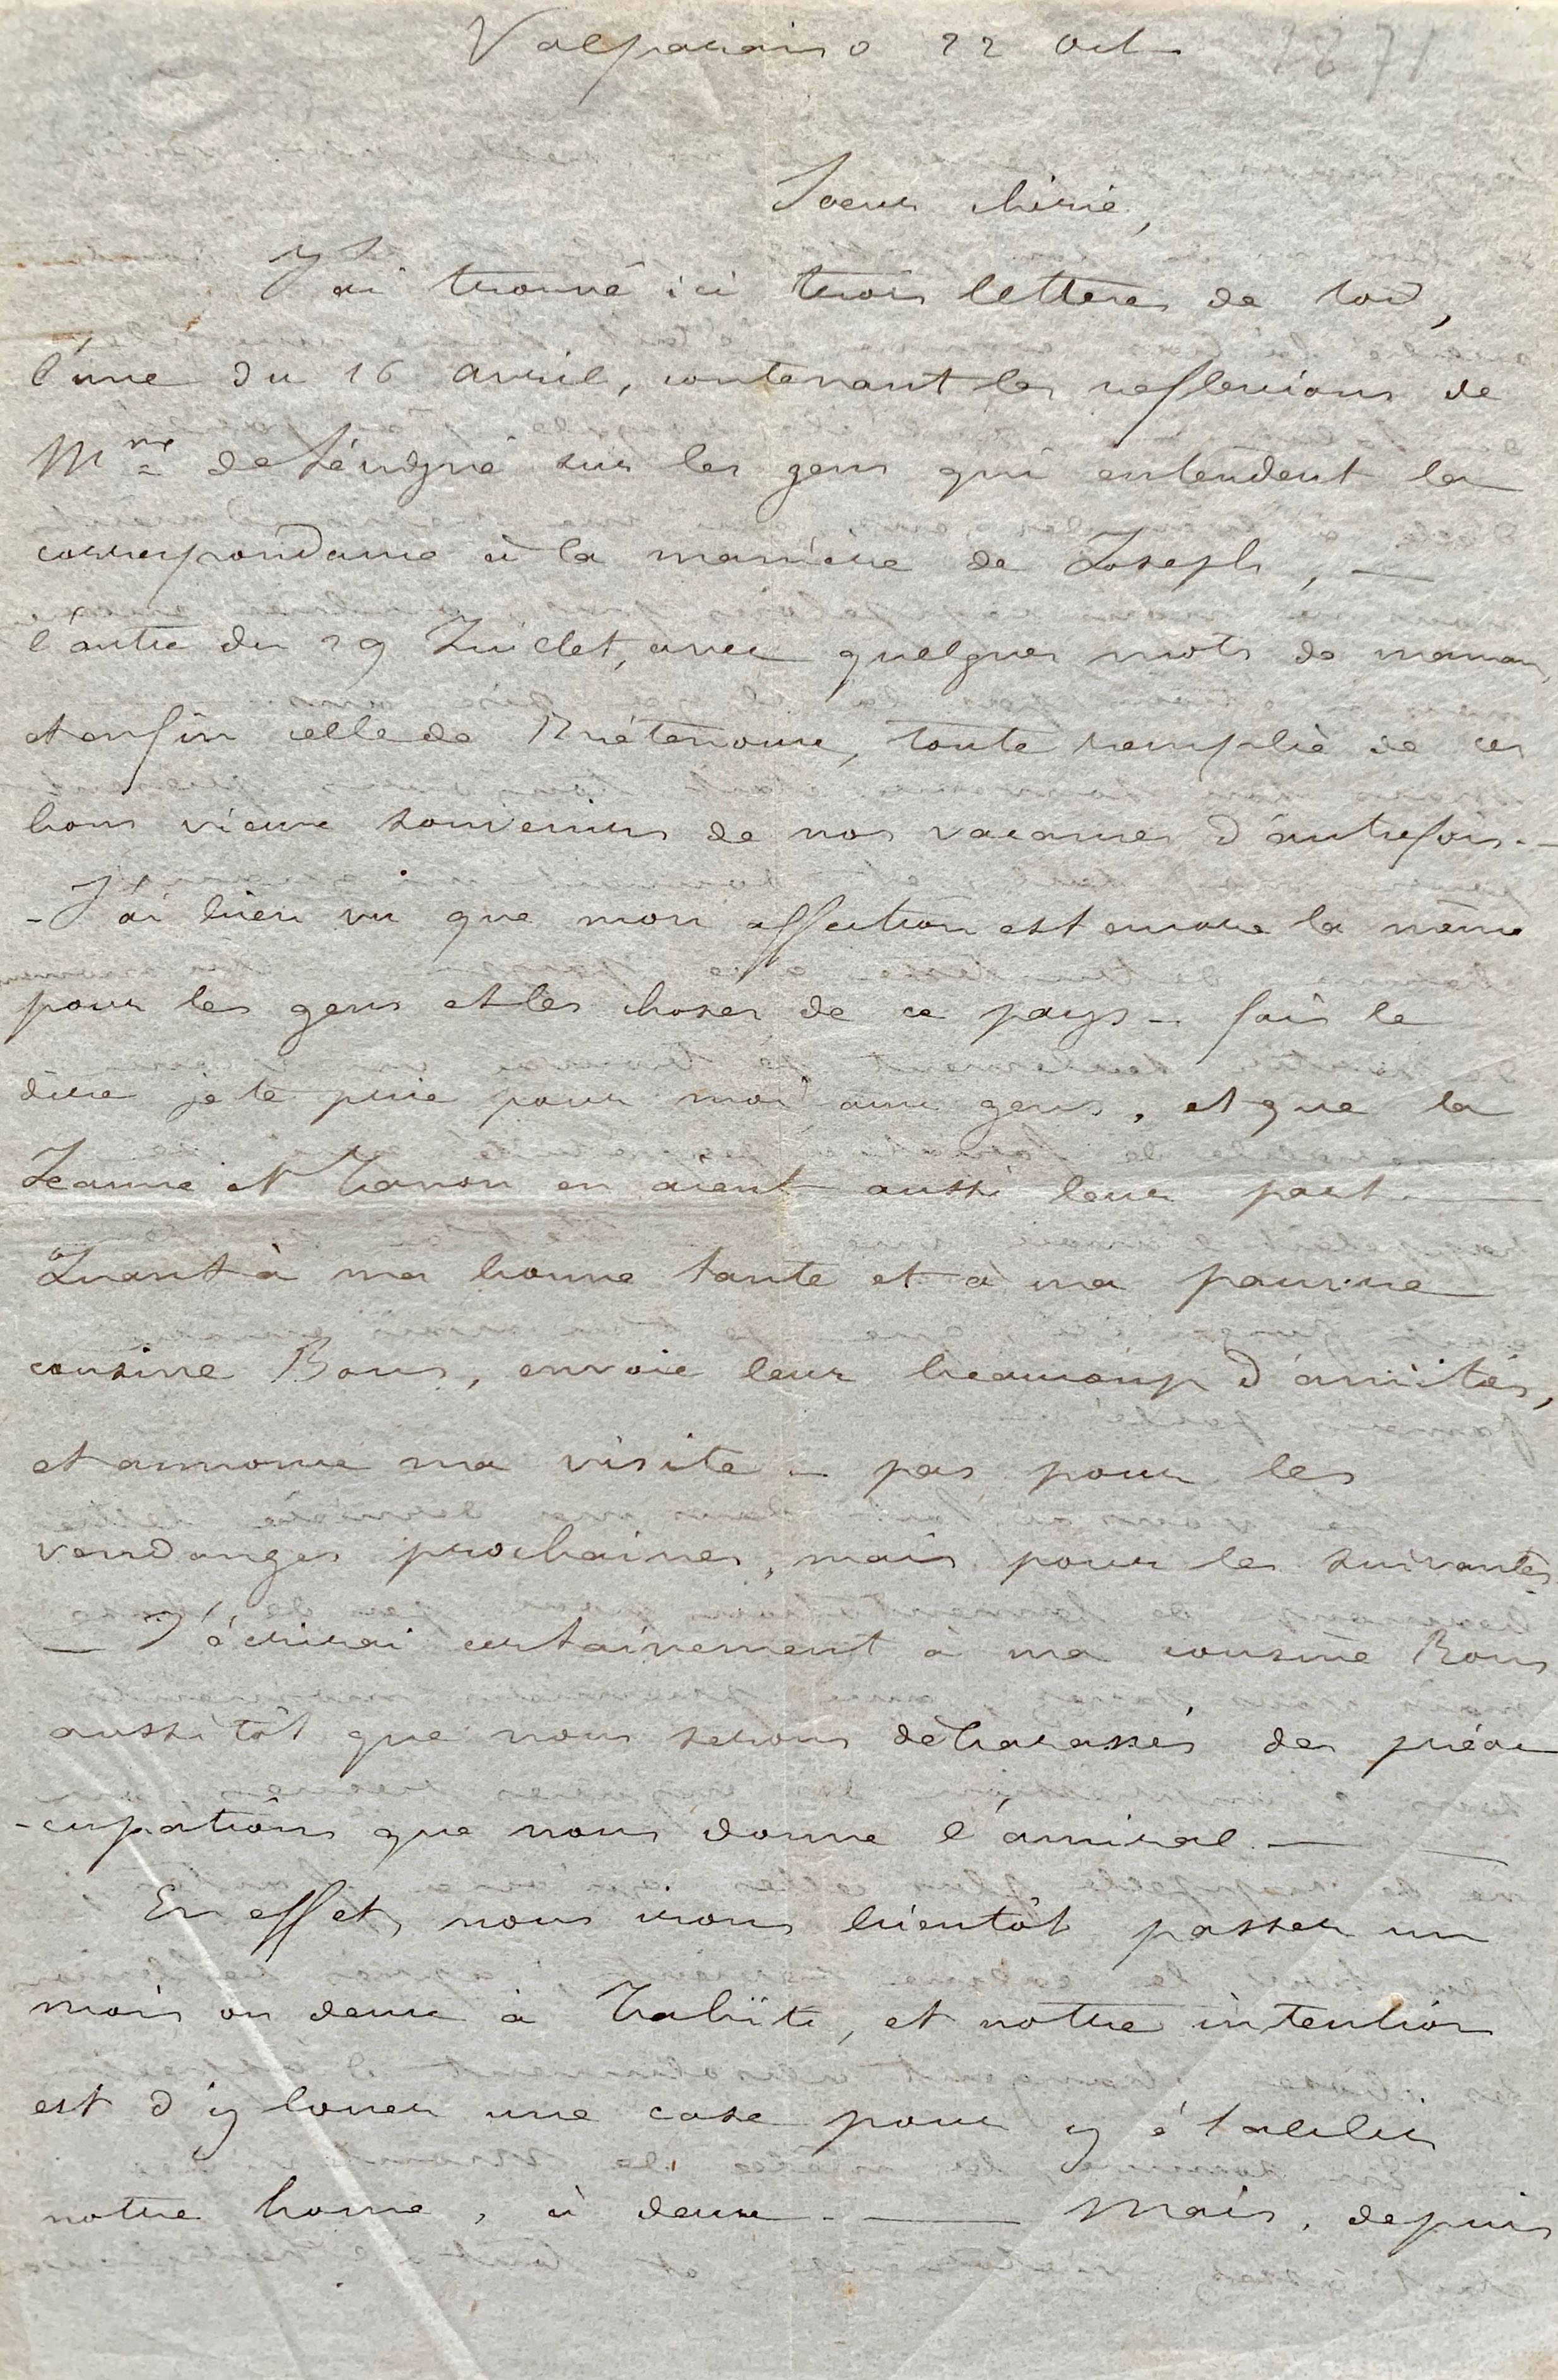 Valparaiso 22 Oct 1871
Soeur chérie,
J'ai trouvé ici trois lettres de toi,
l'une du 16 avril, contenant les reflexions de
Mme de Sévigné sur les gens qui entendent la
correspondance à la manière de Joseph, —
l'autre du 29 Juillet, avec quelques mots de maman,
et enfin celle de Friétenoux, toute remplie de ces
bons vieux souvenirs de nos vacances d'autrefois. —
- J'ai bien vu que mon affection est encore la même
pour les gens et les choses de ce pays — fais le
dire je te prie pour moi aux gens, et que la
Jeanne et Tanon en aient aussi leur part. —
Quant à ma bonne tante et à ma pauvre
cousine Bous, envoie leur beaucoup d'amitiés,
et annonce ma visite — pas pour les
vendanges prochaines, mais pour les suivantes.
— J'écrirai certainement à ma cousine Bous
aussitôt que nous serons débarassés des préoc
-cupations que nous donne l'amiral. —
En effet, nous irons bientôt passer un
mois ou deux à Tahïti, et notre intention
est d'y louer une case pour y établir
notre home, à deux. — Mais, depuis